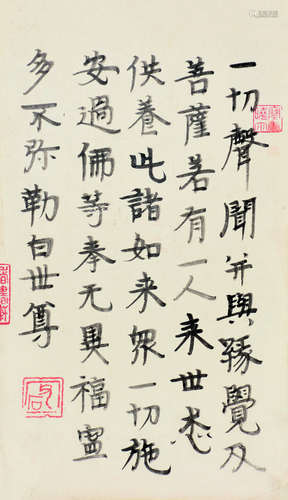 一切聲聞并與緣覺及
菩薩若有一人来世悉
供養此諸如来眾一切施
安過俻等奉无異福寧
多不弥勒白世尊